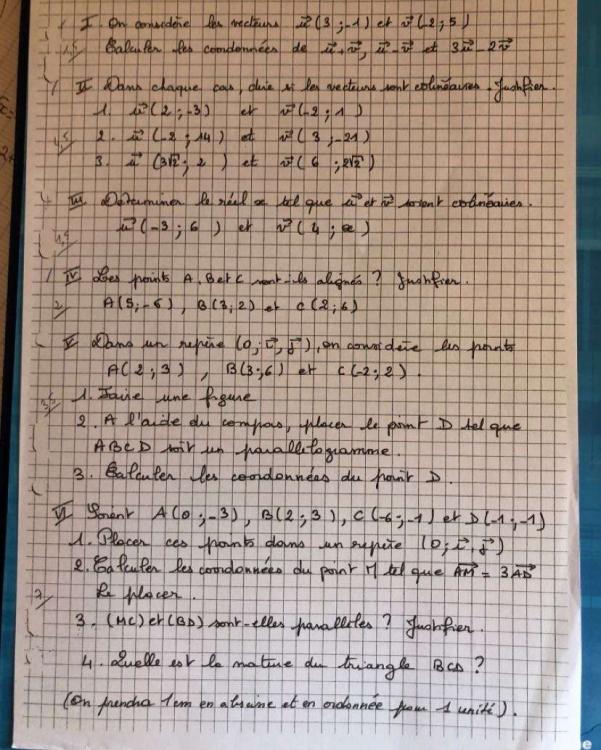 I. On considère les vecteurs u⃗(3 ; -1) et v⃗(-2 ; 5)
1,5 Calculer les coordonnées de u⃗+v⃗, u⃗-v⃗ et 3u⃗-2v⃗
II Dans chaque cas, dire si les vecteurs sont colinéaires. Justifier.
1. u⃗(2 ; -3) et v⃗(-2 ; 1)
4,5 2. u⃗(-2 ; 14) et v⃗(3 ; -21)
3. u⃗(3√2 ; 2) et v⃗(6 ; 2√2)
III Déterminer le réel x tel que u⃗ et v⃗ soient colinéaires.
1,5 u⃗(-3 ; 6) et v⃗(4 ; x)
IV Les points A, B et C sont-ils alignés ? Justifier.
2 A(5 ; -6), B(3 ; 2) et C(2 ; 6)
V Dans un repère (O ; i⃗, j⃗), on considère les points
A(2 ; 3), B(3 ; 6) et C(-2 ; 2).
3,5 1. Faire une figure
2. A l'aide du compas, placer le point D tel que
ABCD soit un parallélogramme.
3. Calculer les coordonnées du point D.
VI Soient A(0 ; -3), B(2 ; 3), C(-6 ; -1) et D(-1 ; -1)
1. Placer ces points dans un repère (O ; i⃗, j⃗)
2. Calculer les coordonnées du point M tel que AM⃗ = 3AD⃗
7 Le placer.
3. (MC) et (BD) sont-elles parallèles ? Justifier.
4. Quelle est la nature du triangle BCD ?
(On prendra 1cm en abscisse et en ordonnée pour 1 unité).